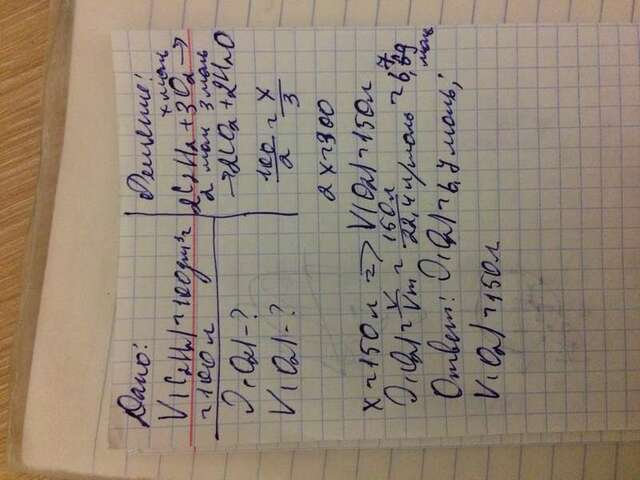 Дано:
V(C2H2)=100дм³=
=100л
V(O2)-?
V(O2)-?
Решение:
x моль
2C2H2+3O2→
2 моль 3 моль
→2CO2+2H2O
100/2=x/3
2x=300
x=150л => V(O2)=150л
V(O2)=V/Vm=150л/22,4л/моль=6,7
моль
Ответ: V(O2)=6,7моль;
V(O2)=150л